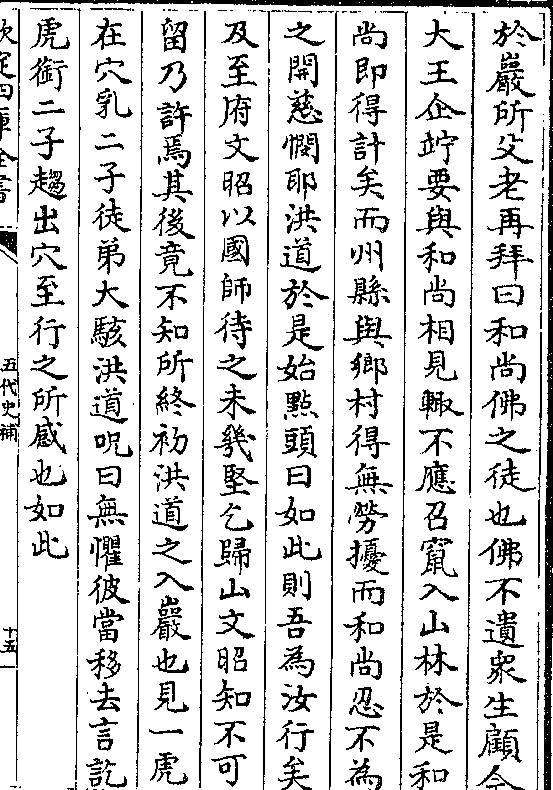 於巖所父老再拜曰和尚佛之徒也佛不遺衆生顧今
大王企竚要與和尚相見輙不應召竄入山林於是和
尚即得計矣而州縣與鄉村得無勞擾而和尚忍不為
之開慈憫耶洪道於是始點頭曰如此則吾為汝行矣
及至府文昭以國師待之未幾堅乞歸山文昭知不可
留乃許焉其後竟不知所終初洪道之入巖也見一虎
在穴乳二子徒弟大駭洪道呪曰無懼彼當移去言訖
虎銜二子趨出穴至行之所感也如此
欽定四庫全書
五代史補
十五